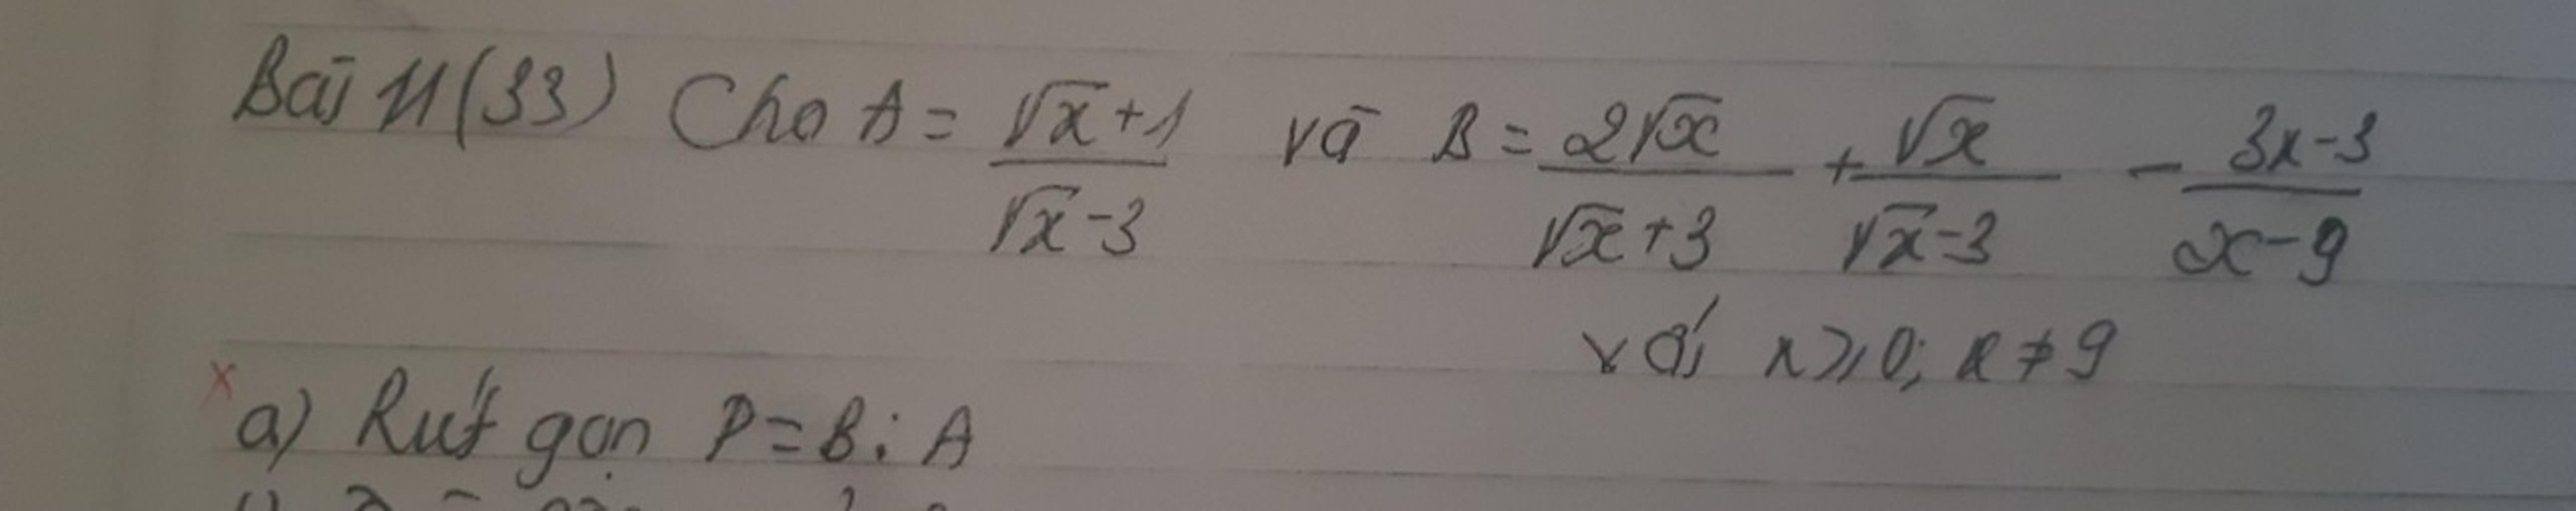 Bài 11 (33) Cho A = \frac{\sqrt{x}+1}{\sqrt{x}-3} và B = \frac{2\sqrt{x}}{\sqrt{x}+3} + \frac{\sqrt{x}}{\sqrt{x}-3} - \frac{3x-3}{x-9}
với x ⩾ 0; x ≠ 9
x a) Rút gọn P = B : A